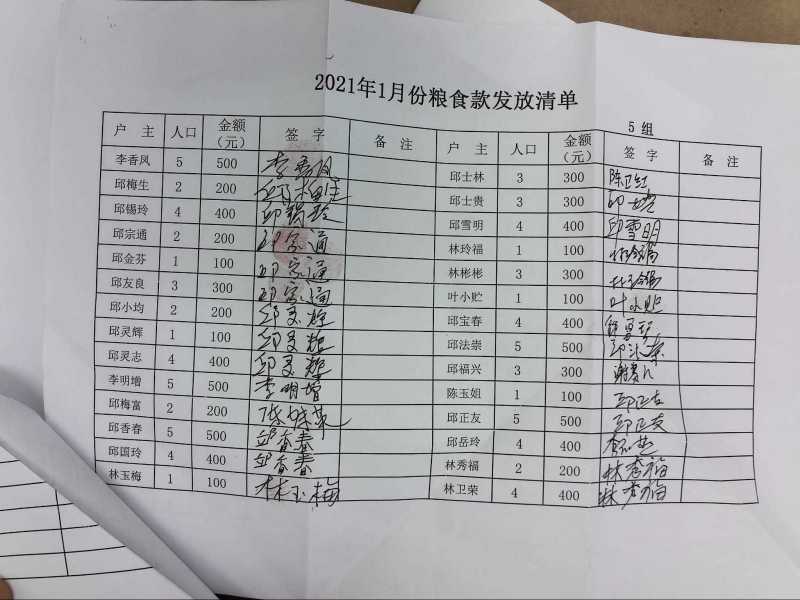 2021年1月份粮食款发放清单
5 组
户 主 人口 金额（元） 签 字 备 注 户 主 人口 金额（元） 签 字 备 注
李香凤 5 500 李香凤 邱士林 3 300 陈卫红
邱梅生 2 200 邱梅生 邱士贵 3 300 邱士贵
邱锡玲 4 400 邱锡玲 邱雪明 4 400 邱雪明
邱宗通 2 200 邱宗通 林玲福 1 100 林玲福
邱金芬 1 100 邱宗通 林彬彬 3 300 林玲福
邱友良 3 300 邱宗通 叶小贮 1 100 叶小贮
邱小均 2 200 邱灵辉 邱宝春 4 400
邱灵辉 1 100 邱灵辉 邱法崇 5 500 邱法崇
邱灵志 4 400 邱灵辉 邱福兴 3 300
李明增 5 500 李明增 陈玉姐 1 100 邱正友
邱梅富 2 200 邱正友 5 500 邱正友
邱香春 5 500 邱香春 邱岳玲 4 400
邱国玲 4 400 邱香春 林秀福 2 200 林秀福
林玉梅 1 100 林玉梅 林卫荣 4 400 林秀福